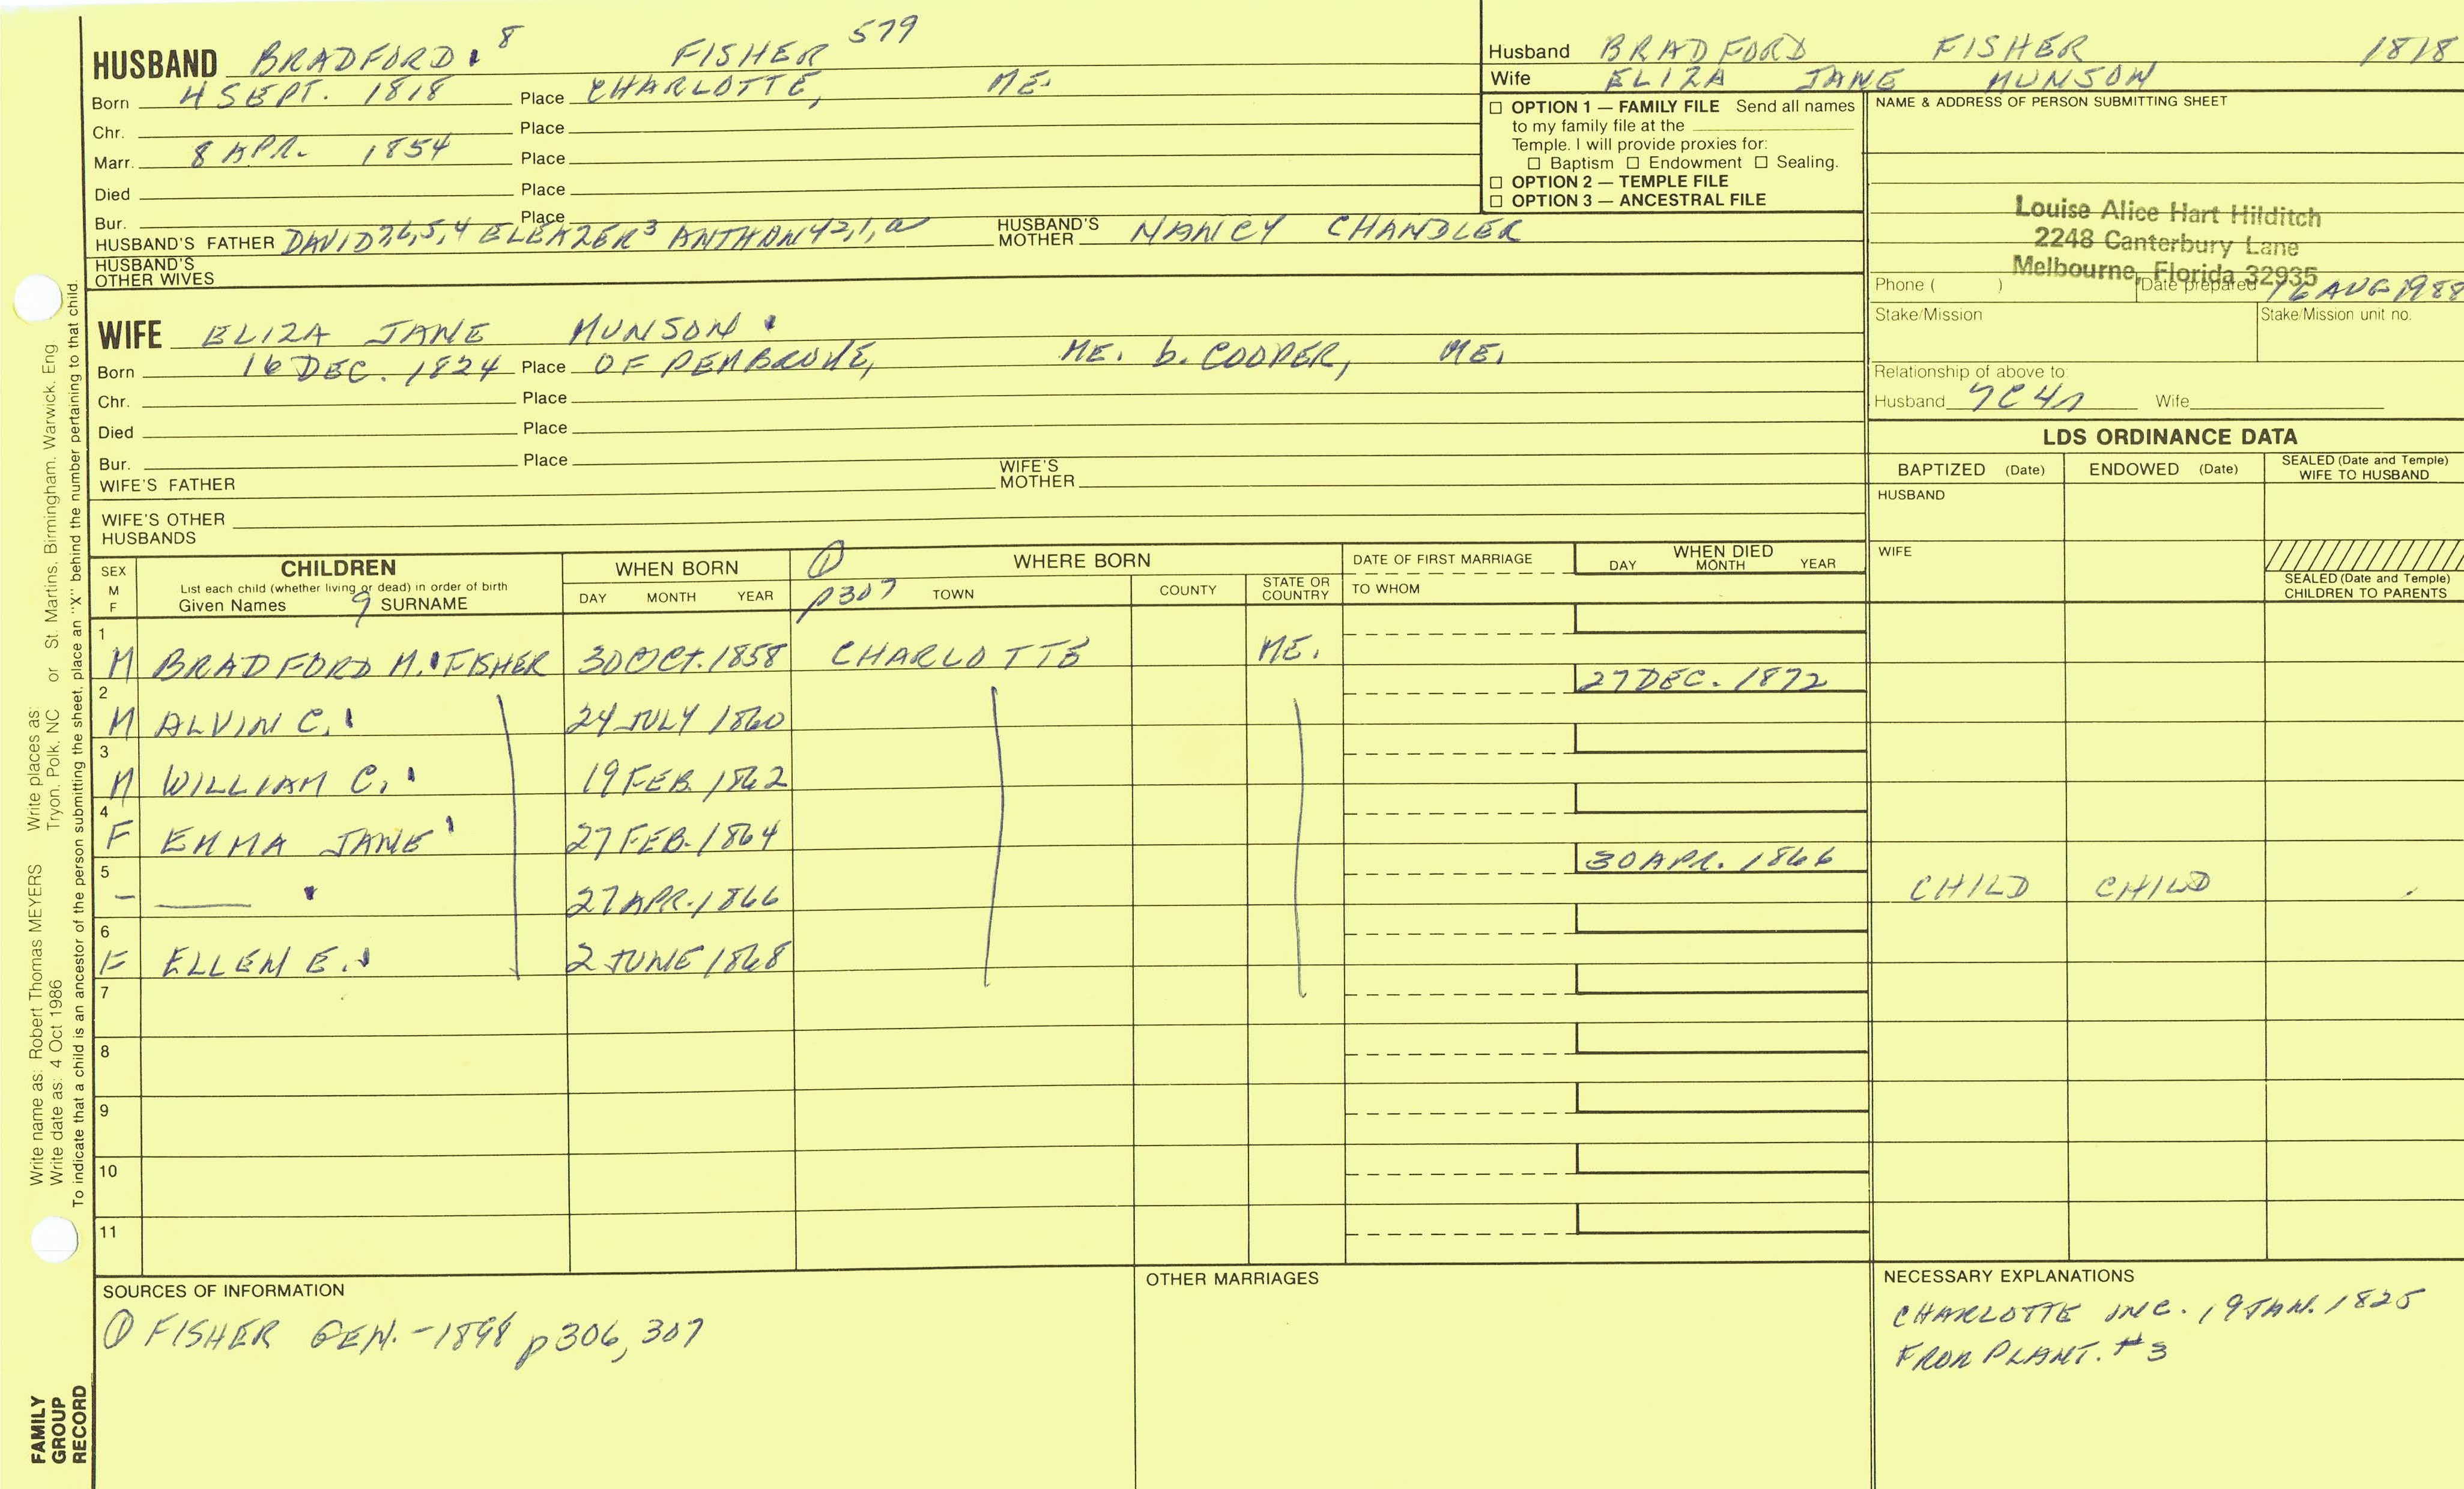 HUSBAND BRADFORD 8 FISHER 579
Born 4 SEPT. 1818 Place CHARLOTTE, ME.
Chr. Place
Marr. 8 APR. 1854 Place
Died Place
Bur. Place
HUSBAND'S FATHER DAVID 7,6,5,4 ELEAZER 3 ANTHONY 2,1,a HUSBAND'S MOTHER NANCY CHANDLER
HUSBAND'S OTHER WIVES
WIFE ELIZA JANE MUNSON
Born 16 DEC. 1824 Place OF PEMBROKE, ME. b. COOPER, ME.
Chr. Place
Died Place
Bur. Place
WIFE'S FATHER WIFE'S MOTHER
WIFE'S OTHER HUSBANDS
Husband BRADFORD FISHER 1818
Wife ELIZA JANE MUNSON
☐ OPTION 1 — FAMILY FILE Send all names
to my family file at the
Temple. I will provide proxies for:
☐ Baptism ☐ Endowment ☐ Sealing.
☐ OPTION 2 — TEMPLE FILE
☐ OPTION 3 — ANCESTRAL FILE
NAME & ADDRESS OF PERSON SUBMITTING SHEET
Louise Alice Hart Hilditch
2248 Canterbury Lane
Melbourne, Florida 32935
Phone ( ) Date prepared 16 AUG 1988
Stake/Mission Stake/Mission unit no.
Relationship of above to:
Husband 7C4R Wife
LDS ORDINANCE DATA
BAPTIZED (Date) ENDOWED (Date) SEALED (Date and Temple) WIFE TO HUSBAND
HUSBAND
WIFE
SEALED (Date and Temple) CHILDREN TO PARENTS
SEX M F
CHILDREN
List each child (whether living or dead) in order of birth
Given Names 9 SURNAME
WHEN BORN
DAY MONTH YEAR
① p307
WHERE BORN
TOWN COUNTY STATE OR COUNTRY
DATE OF FIRST MARRIAGE
TO WHOM
WHEN DIED
DAY MONTH YEAR
1 M BRADFORD M. FISHER 30 OCT. 1858 CHARLOTTE ME.
2 M ALVIN C. 24 JULY 1860 27 DEC. 1872
3 M WILLIAM C. 19 FEB. 1862
4 F EMMA JANE 27 FEB. 1864
5 — — 27 APR. 1866 30 APR. 1866 CHILD CHILD
6 F ELLEN E. 2 JUNE 1868
7
8
9
10
11
SOURCES OF INFORMATION
① FISHER GEN. - 1898 p306, 307
OTHER MARRIAGES
NECESSARY EXPLANATIONS
CHARLOTTE INC. 19 JAN. 1825
FROM PLANT. #3
Write name as: Robert Thomas MEYERS Write places as:
Write date as: 4 Oct 1986 Tryon, Polk, NC or St. Martins, Birmingham, Warwick, Eng
To indicate that a child is an ancestor of the person submitting the sheet, place an "X" behind the number pertaining to that child.
FAMILY
GROUP
RECORD